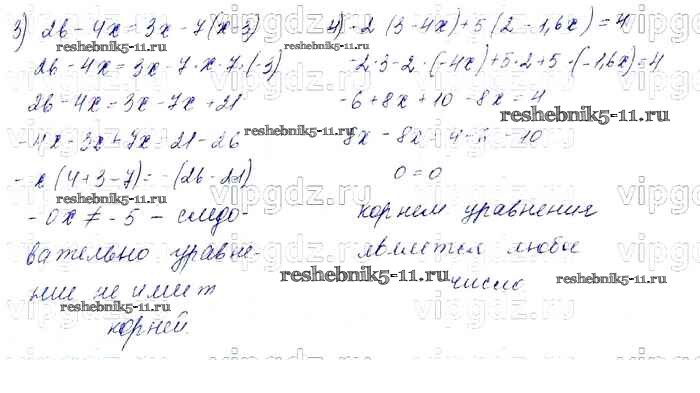 3) 26 - 4x = 3x - 7(x-3)
26 - 4x = 3x - 7·x-7·(-3)
26 - 4x = 3x - 7x + 21
-4x - 3x + 7x = 21 - 26
-x(4+3-7) = -(26-21)
-0x ≠ -5 - следо-
вательно уравне-
ние не имеет
корней.
4) -2(3-4x)+5(2-1,6x)=4
-2·3-2·(-4x)+5·2+5·(-1,6x)=4
-6+8x+10-8x=4
8x - 8x = 4+6-10
0=0
корнем уравнения
является любое
число
reshebnik5-11.ru
reshebnik5-11.ru
reshebnik5-11.ru
reshebnik5-11.ru
reshebnik5-11.ru
reshebnik5-11.ru
reshebnik5-11.ru
reshebnik5-11.ru
reshebnik5-11.ru
vipgdz.ru